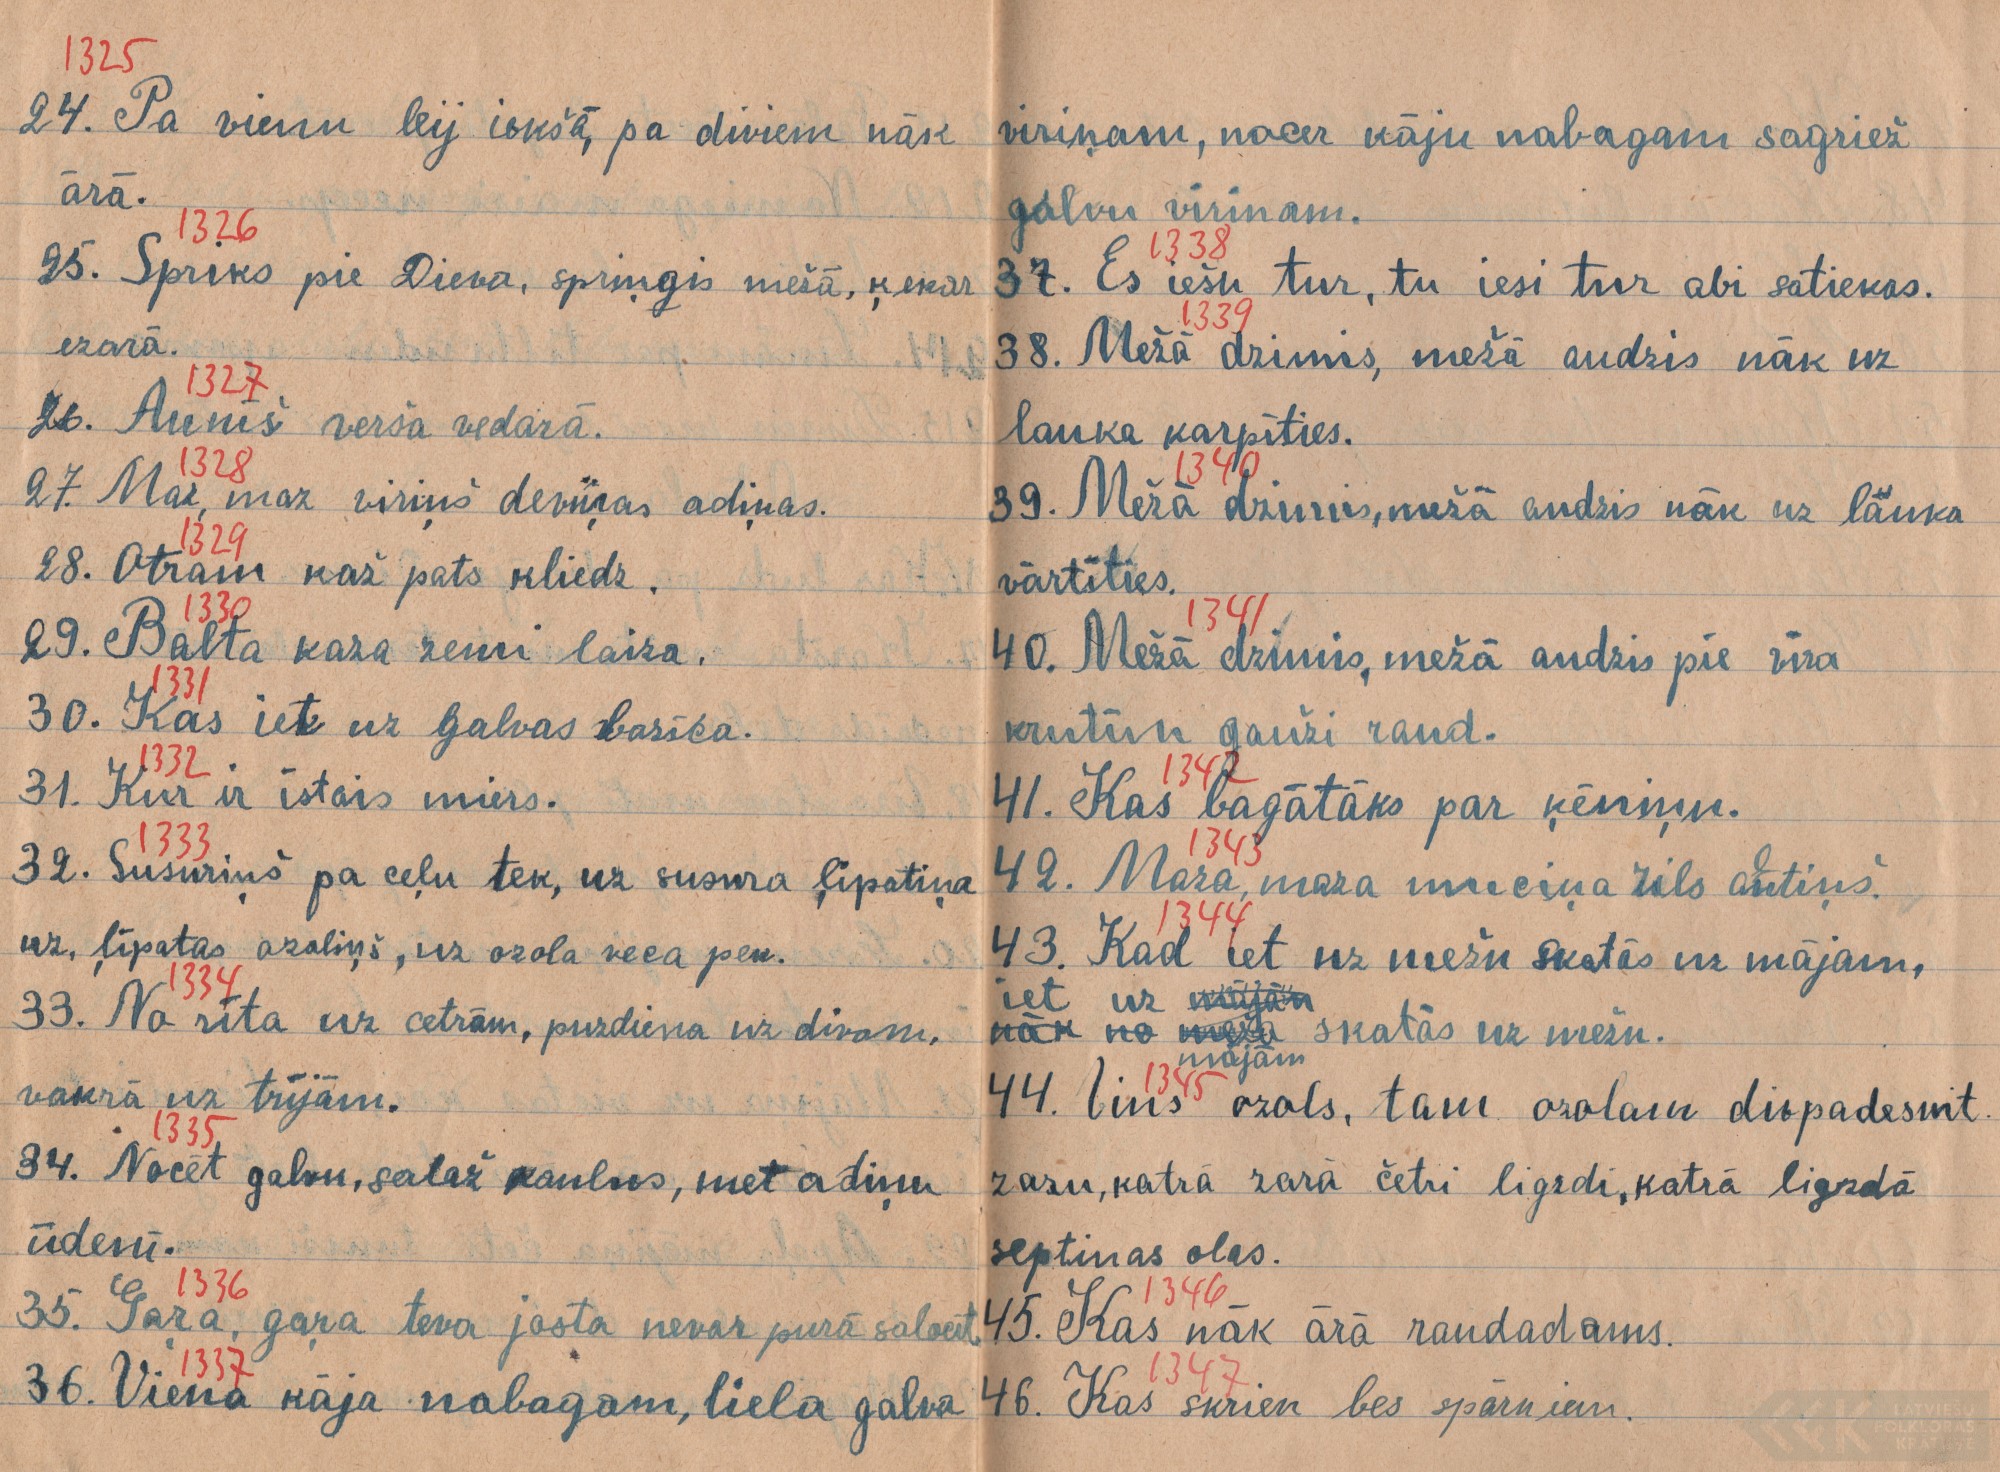 1325
24. Pa vienu leij iekšā, pa diviem nāk
ārā.
1326
25. Spriks pie Dieva, spriņgis mežā, ķekar
ezarā.
1327
26. Auniš verša vedarā.
1328
27. Maz, maz viriņš deviņas adiņas.
1329
28. Otram kaž pats kliedz.
1330
29. Balta kaza zemi laiza.
1331
30. Kas iet uz galvas baznīca.
1332
31. Kur ir īstais miers.
1333
32. Susuriņš pa ceļu tek, uz susura ļipatiņa
uz, ļipatas ozoliņš, uz ozola veca pek.
1334
33. No rīta uz cetrām, puzdiena uz divam,
vakrā uz trījām.
1335
34. Nocēt galvu, salaž kaulus, met adiņu
ūdenī.
1336
35. Gaŗa, gaŗa teva josta nevar purā salocīt.
1337
36. Viena kāja nabagam, liela galva
viriņam, nocer kāju nabagam sagriež
galvu virinam.
1338
37. Es iešu tur, tu iesi tur abi satiekas.
1339
38. Mežā dzimis, mežā audzis nāk uz
lauka karpīties.
1340
39. Mežā dzimis, mežā audzis nāk uz lauka
vārtīties.
1341
40. Mežā dzimis, mežā audzis pie vīra
krutīm gauži raud.
1342
41. Kas bagātāks par ķēniņu.
1343
42. Maza, maza muciņa zils autiņš.
1344
43. Kad iet uz mežu skatās uz mājam,
iet uz mājām
nāk no meža skatās uz mežu.
mājām
1345
44. Vins ozols, tam ozolam divpadesmit
zaru, katrā zarā četri ligzdi, katrā ligzdā
septinas olas.
1346
45. Kas nāk ārā raudadams.
1347
46. Kas skrien bes spārniem.
LATVIEŠU
FOLKLORAS
KRĀTUVE